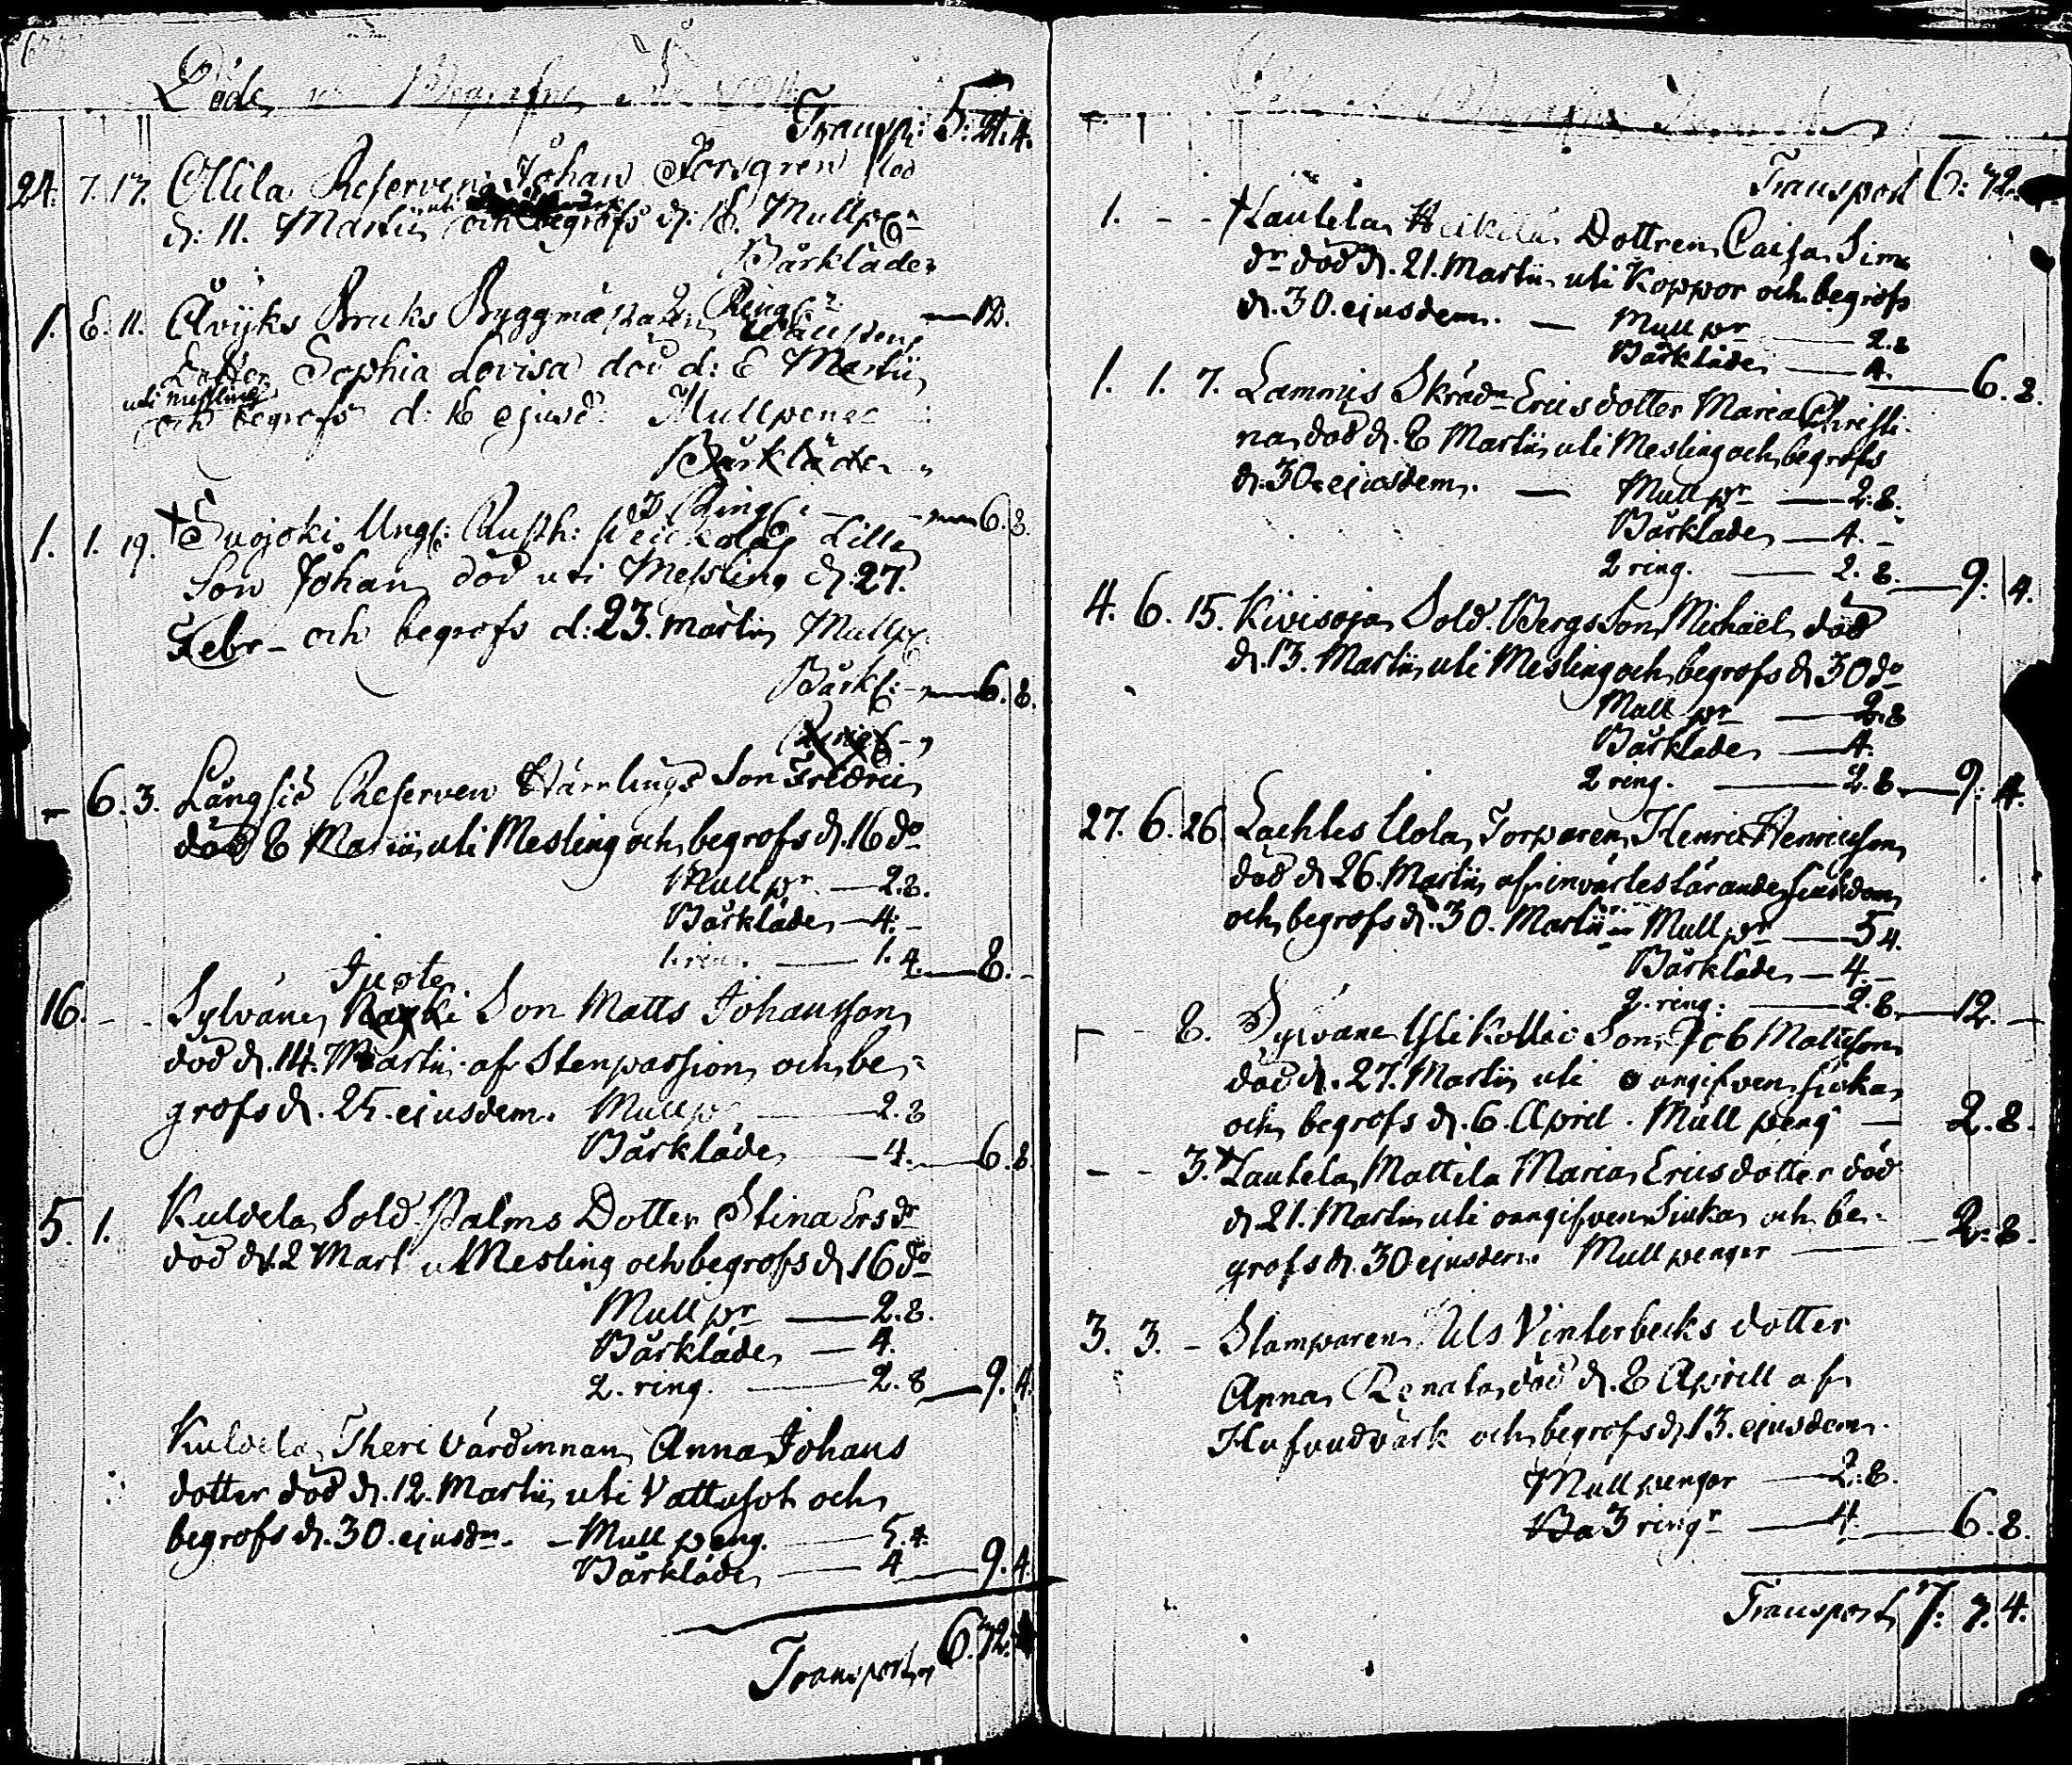 Döde
Transp: 5: 21.4.
24. 7. 17. Ollila Reserven Johan Forsgren död
d: 11. Martii och begrofs d: 18. Mullp:
Bårkläde
Ringn:
1. 8. 11. Åvijks Bruks Byggmästaren — 12.
Dotter Sophia Lovisa död d: 8 Martii
uti Messling
och begrofs d: 16 ejusd: Mullpenar
Bårkläde
Ring: — 6. 8.
1. 1. 19. + Suojoki Ungf: Rusth: Lilla
Son Johan död uti Messling d. 27.
Febr- och begrofs d: 23. Martii Mullp:
Bårkl: — 6. 8.
- 6. 3. Långsid Reserven Härrlings Son Fredric
död 8 Martii uti Mesling och begrofs d. 16 do
Mull pr. — 2. 8.
Bårkläde — 4. -
1. ring — 1. 4. — 8. -
Juote
16. - - Sylvänä Son Matts Johansson
död d. 14. Martii af Stenpassion och be-
grofs d. 25. ejusdem. Mullp — 2. 8
Bårkläde — 4. — 6. 8
5. 1. Kuldela Sold. Palms Dotter Stina Ersdr
död d. 2 Mart u Mesling och begrofs d. 16 do
Mull pr — 2. 8.
Bårkläde — 4.
2. ring. — 2. 8 — 9. 4.
Kuldela Theri Värdinnan Anna Johans
dotter död d. 12. Martii uti Vattusot och
begrofs d. 30. ejusdm. - Mull peng. — 5. 4.
Bårkläde — 4 — 9. 4.
Transport 6. 72.
Transport 6: 72.
1. - - + Lautela Heikilä Dottren Caisa Sims
dr död d. 21. Martii uti Koppor och begrofs
d. 30. ejusdem. — Mull pr — 2. 8
Bårkläde — 4. — 6. 8.
1. 1. 7. Lammis Skrädn Ericsdotter Maria Christi-
na död d. 8 Martii uti Mesling och begrofs
d. 30. ejusdem. — Mull pr — 2. 8.
Bårkläde — 4. -
2 ring. — 2. 8. — 9. 4.
4. 6. 15. Kivisoja Sold. Bergs Son Michäel död
d. 13. Martii uti Mesling och begrofs d 30 do
Mull pr — 2. 8
Bårkläde — 4.
2 ring. — 2. 8. — 9. 4.
27. 6. 26. Lachtis Uola Torparen Henric Henricsson
död d 26. Martii af invärtes tärande siukdom
och begrofs d. 30. Martii - Mull pr — 5 4.
Bårkläde — 4. -
2. ring. — 2. 8. — 12. -
- - 8. Sylvänä Son Job Mattsson
död d. 27. Martii uti oangifven siuka
och begrofs d. 6. April. Mull peng — 2. 8.
- - 3. + Lautela Mattila Maria Ericsdotter död
d 21. Martii uti oangifven Siuka och be-
grofs d. 30 ejusdem. Mull pengar — 2. 8.
3. 3. - Stamparen Uls Vinterbecks dotter
Anna Renata död d. 8 Aprill af
Hufvudvärk och begrofs d. 13. ejusdem.
Mull pengar — 2. 8.
3 ringr — 4. — 6. 8.
Transport 7: 7. 4.